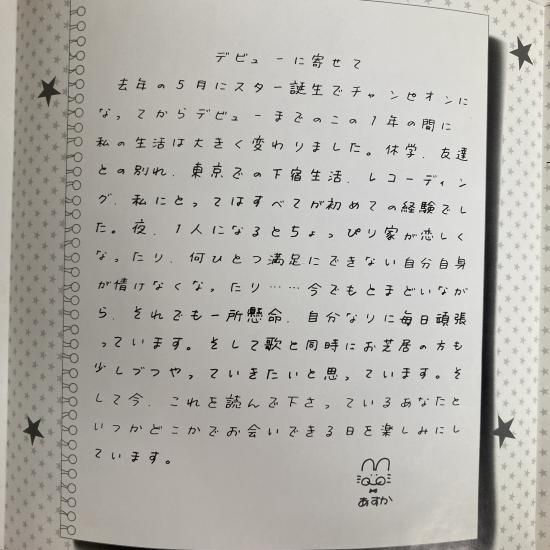 デビューに寄せて
去年の5月にスター誕生でチャンピオンに
なってからデビューまでのこの1年の間に
私の生活は大きく変わりました。休学、友達
との別れ、東京での下宿生活、レコーディン
グ、私にとってはすべてが初めての経験でし
た。夜、1人になるとちょっぴり家が恋しく
なったり、何ひとつ満足にできない自分自身
が情けなくなったり……今でもとまどいなが
ら、それでも一所懸命、自分なりに毎日頑張
っています。そして歌と同時にお芝居の方も
少しづつやっていきたいと思っています。そ
して今、これを読んで下さっているあなたと
いつかどこかでお会いできる日を楽しみにし
ています。
あすか